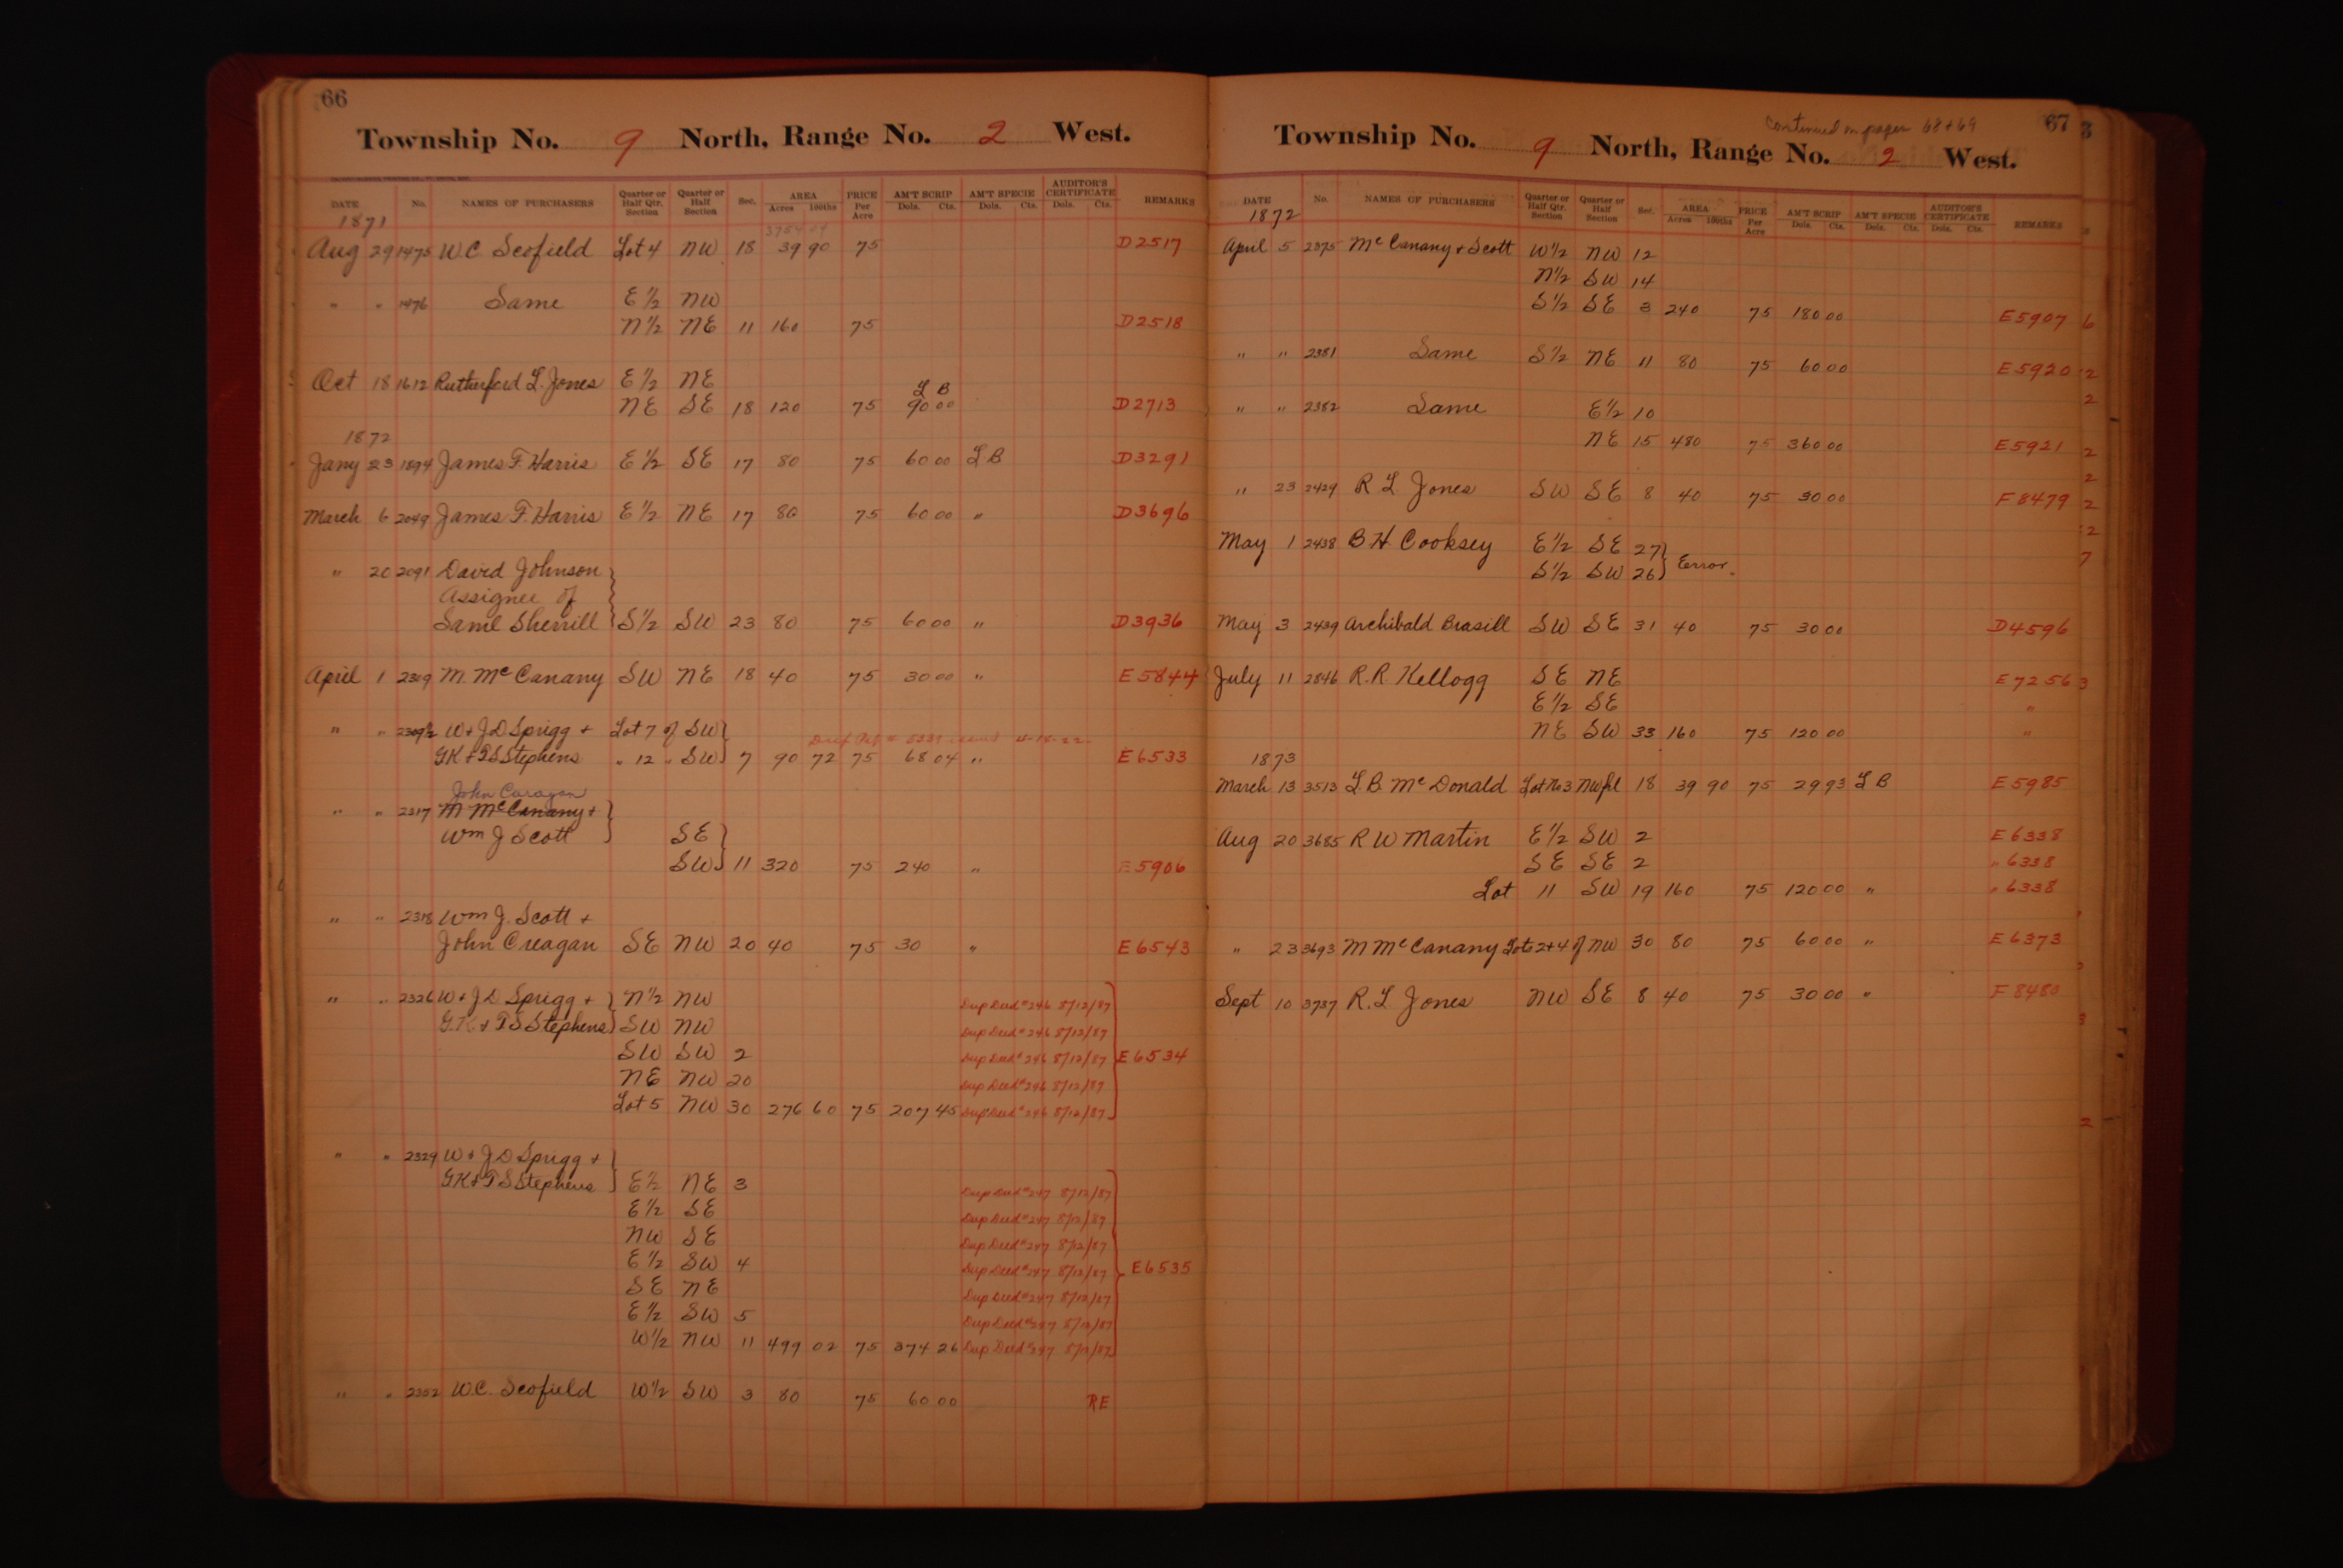 66
Township No. 9 North, Range No. 2 West.
DATE No. NAMES OF PURCHASERS Quarter or Half Qtr. Section Quarter or Half Section Sec. AREA Acres 100ths PRICE Per Acre AM'T SCRIP Dols. Cts. AM'T SPECIE Dols. Cts. AUDITOR'S CERTIFICATE Dols. Cts. REMARKS
1871
Aug 29 1475 W.C. Scofield Lot 4 NW 18 39 90 75 D2517
" " 1476 Same E½ NW
N½ NE 11 160 75 D2518
Oct 18 1612 Rutherford L. Jones E½ NE L B
NE SE 18 120 75 90 00 D2713
1872
Jany 23 1894 James F. Harris E½ SE 17 80 75 60 00 L B D3291
March 6 2049 James F. Harris E½ NE 17 80 75 60 00 " D3696
" 20 2091 David Johnson
Assignee of
Saml Sherrill S½ SW 23 80 75 60 00 " D3936
April 1 2309 M. McCanany SW NE 18 40 75 30 00 " E5844
" " 2309½ W + J D Sprigg + Lot 7 of SW
GK + TS Stephens " 12 " SW 7 90 72 75 68 04 " E6533
John Caragan
" " 2317 M McCanany +
Wm J Scott SE
SW 11 320 75 240 " E5906
" " 2318 Wm J. Scott +
John Creagan SE NW 20 40 75 30 " E6543
" " 2326 W + J D Sprigg + N½ NW Dup Deed #246 8/12/87
G.K + T S Stephens SW NW Dup Deed #246 8/12/87
SW SW 2 Dup Deed #246 8/12/87 E6534
NE NW 20 Dup Deed #246 8/12/87
Lot 5 NW 30 276 60 75 207 45 Dup Deed #246 8/12/87
" " 2329 W + J D Sprigg +
GK + TS Stephens E½ NE 3 Dup Deed #247 8/12/87
E½ SE Dup Deed #247 8/12/87
NW SE Dup Deed #247 8/12/87
E½ SW 4 Dup Deed #247 8/12/87 E6535
SE NE Dup Deed #247 8/12/87
E½ SW 5 Dup Deed #247 8/12/87
W½ NW 11 499 02 75 374 26 Dup Deed #247 8/12/87
" " 2352 W.C. Scofield W½ SW 3 80 75 60 00 RE
Continued on pages 68+69
67
Township No. 9 North, Range No. 2 West.
DATE No. NAMES OF PURCHASERS Quarter or Half Qtr. Section Quarter or Half Section Sec. AREA Acres 100ths PRICE Per Acre AM'T SCRIP Dols. Cts. AM'T SPECIE Dols. Cts. AUDITOR'S CERTIFICATE Dols. Cts. REMARKS
1872
April 5 2375 McCanany + Scott W½ NW 12
N½ SW 14
S½ SE 3 240 75 180 00 E5907
" " 2381 Same S½ NE 11 80 75 60 00 E5920
" " 2382 Same E½ 10
NE 15 480 75 360 00 E5921
" 23 2429 R L Jones SW SE 8 40 75 30 00 F8479
May 1 2438 B H Cooksey E½ SE 27
S½ SW 26 Error.
May 3 2439 Archibald Brasill SW SE 31 40 75 30 00 D4596
July 11 2846 R.R. Kellogg SE NE E7256
E½ SE "
NE SW 33 160 75 120 00 "
1873
March 13 3513 L.B. McDonald Lot No 3 NWfrl 18 39 90 75 29 93 L B E5985
Aug 20 3685 R W Martin E½ SW 2 E6338
SE SE 2 " 6338
Lot 11 SW 19 160 75 120 00 " " 6338
" 23 3693 M McCanany Lots 2+4 of NW 30 80 75 60 00 " E6373
Sept 10 3737 R. L Jones NW SE 8 40 75 30 00 " F8480